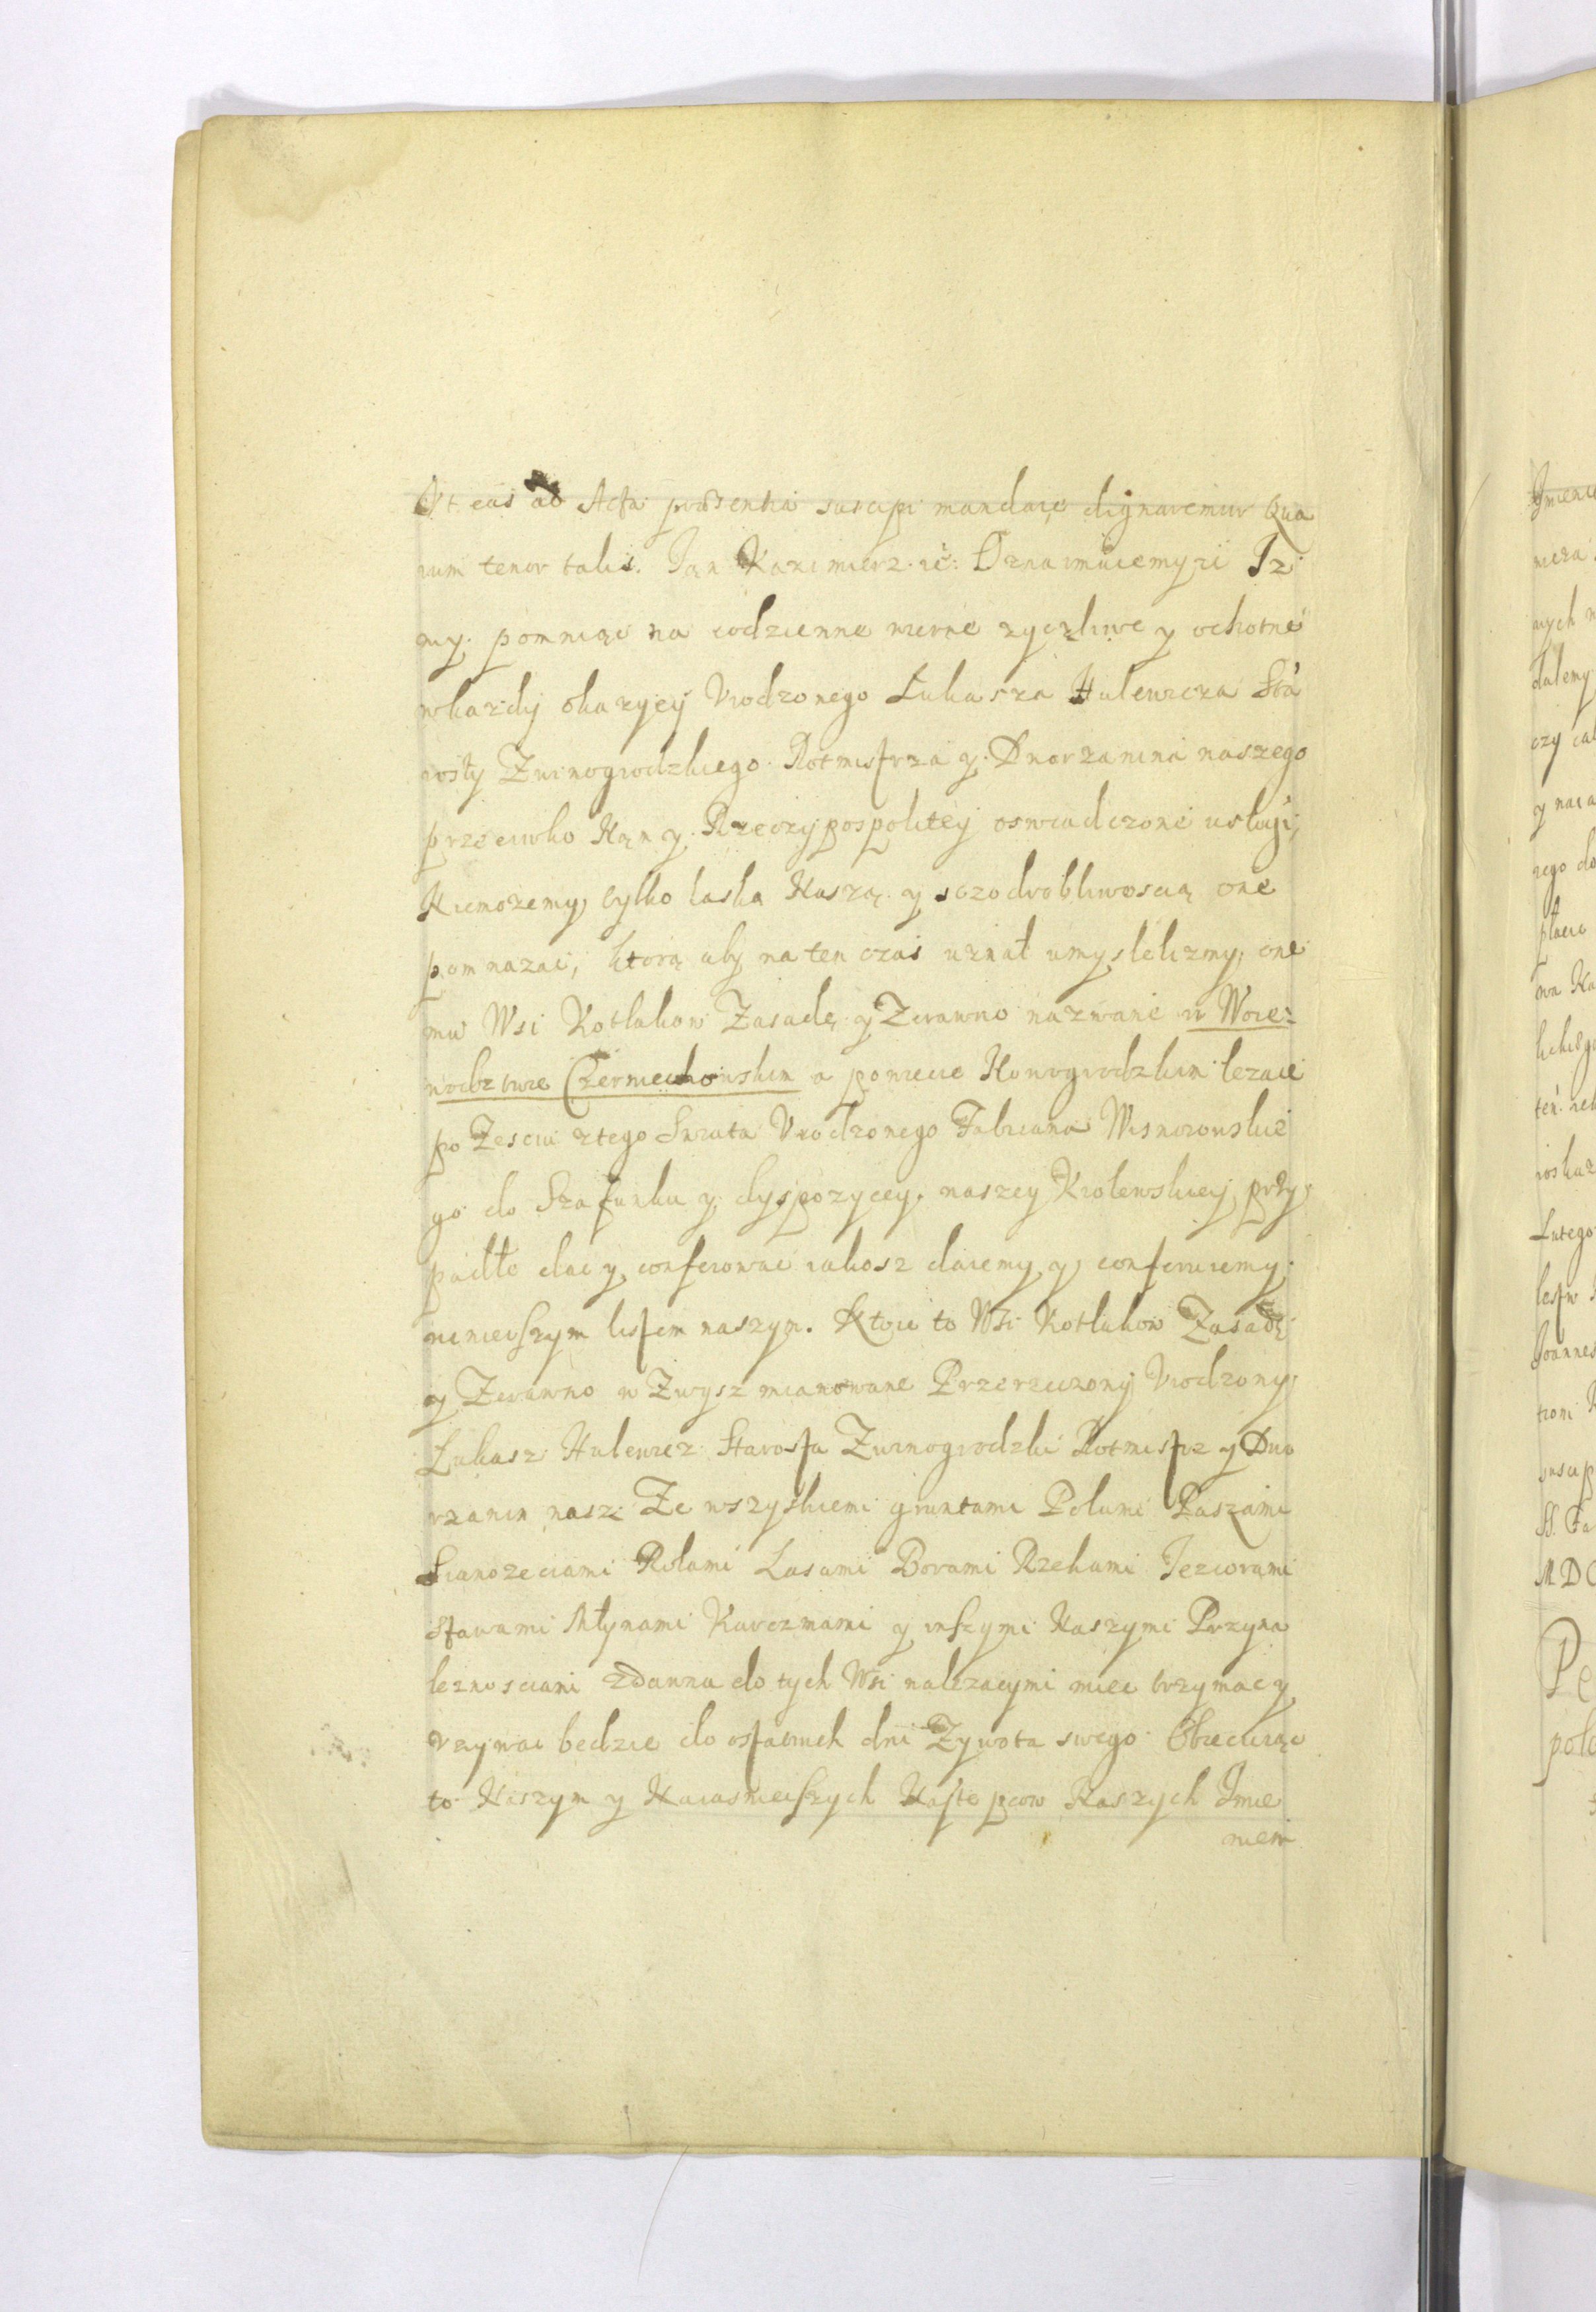 Vt eas ad Acta praesentia suscipi mandare dignaremur Qua
rum tenor talis. Jan Kazimierz. etc: Oznaimuiemy ze Iz
my. pomniąc na codzienne wierne zyczliwe y ochotne
wkazdy okazyey Vrodzonego Łukasza Hulewicza Sta
rosty Zwinogrodzkiego. Rotmistrza y. Dworzanina naszego
przeciwko Nąm y. Rzeczypospolitey oswiadczone usługi,
Niemozemy, tylko łaską Naszą. y sczodrobliwoscią one
pomnazac, ktorą aby na ten czas uznał umyslelizmy, one
mu Wsi Kotlakow Zasadę. y Zerawno nazwane w Woie:
wodztwie Czerniechowskim a powiecie Nowogrodzkim lezące
po Zesciu ztego Swiata Vrodzonego Fabiana Wisniowskie
go do Szafunku y, dyspozycey. naszey Krolewskiey, przy
padłe dac y, conferowac iakosz daiemy, y, conferuiemy.
ninieiszym listem naszym. Ktore to Wsi Kotlakow Zasadę
y Zerawno w Zwysz mianowane Przerzeczony Vrodzony,
Łukasz Hulewicz Starosta Zwinogrodzki Rotmistrz y Dwo
rzanin nasz: Ze wszystkiemi gruntami Polami Paszami
Sianozeciami Rolami Lasami Borami Rzekami Jeziorami
Stawami Młynami Karczmami y inszymi Naszymi Przyna
leznosciami zdawna do tych Wsi nalezacymi miec trzymac y
Vzywac bedzie do ostatnich dni Zywota swego. Obiecuiąc
to Naszym y Naiasnieiszych Nastepcow Naszych Jmie
niem